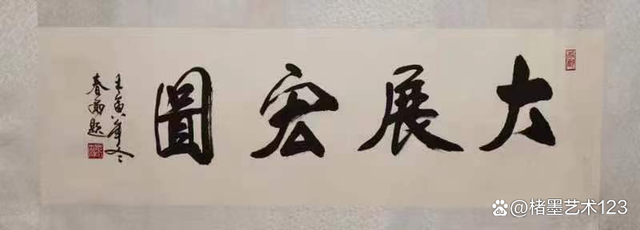 大展宏圖
壬寅年冬
春 题
楮墨艺术123